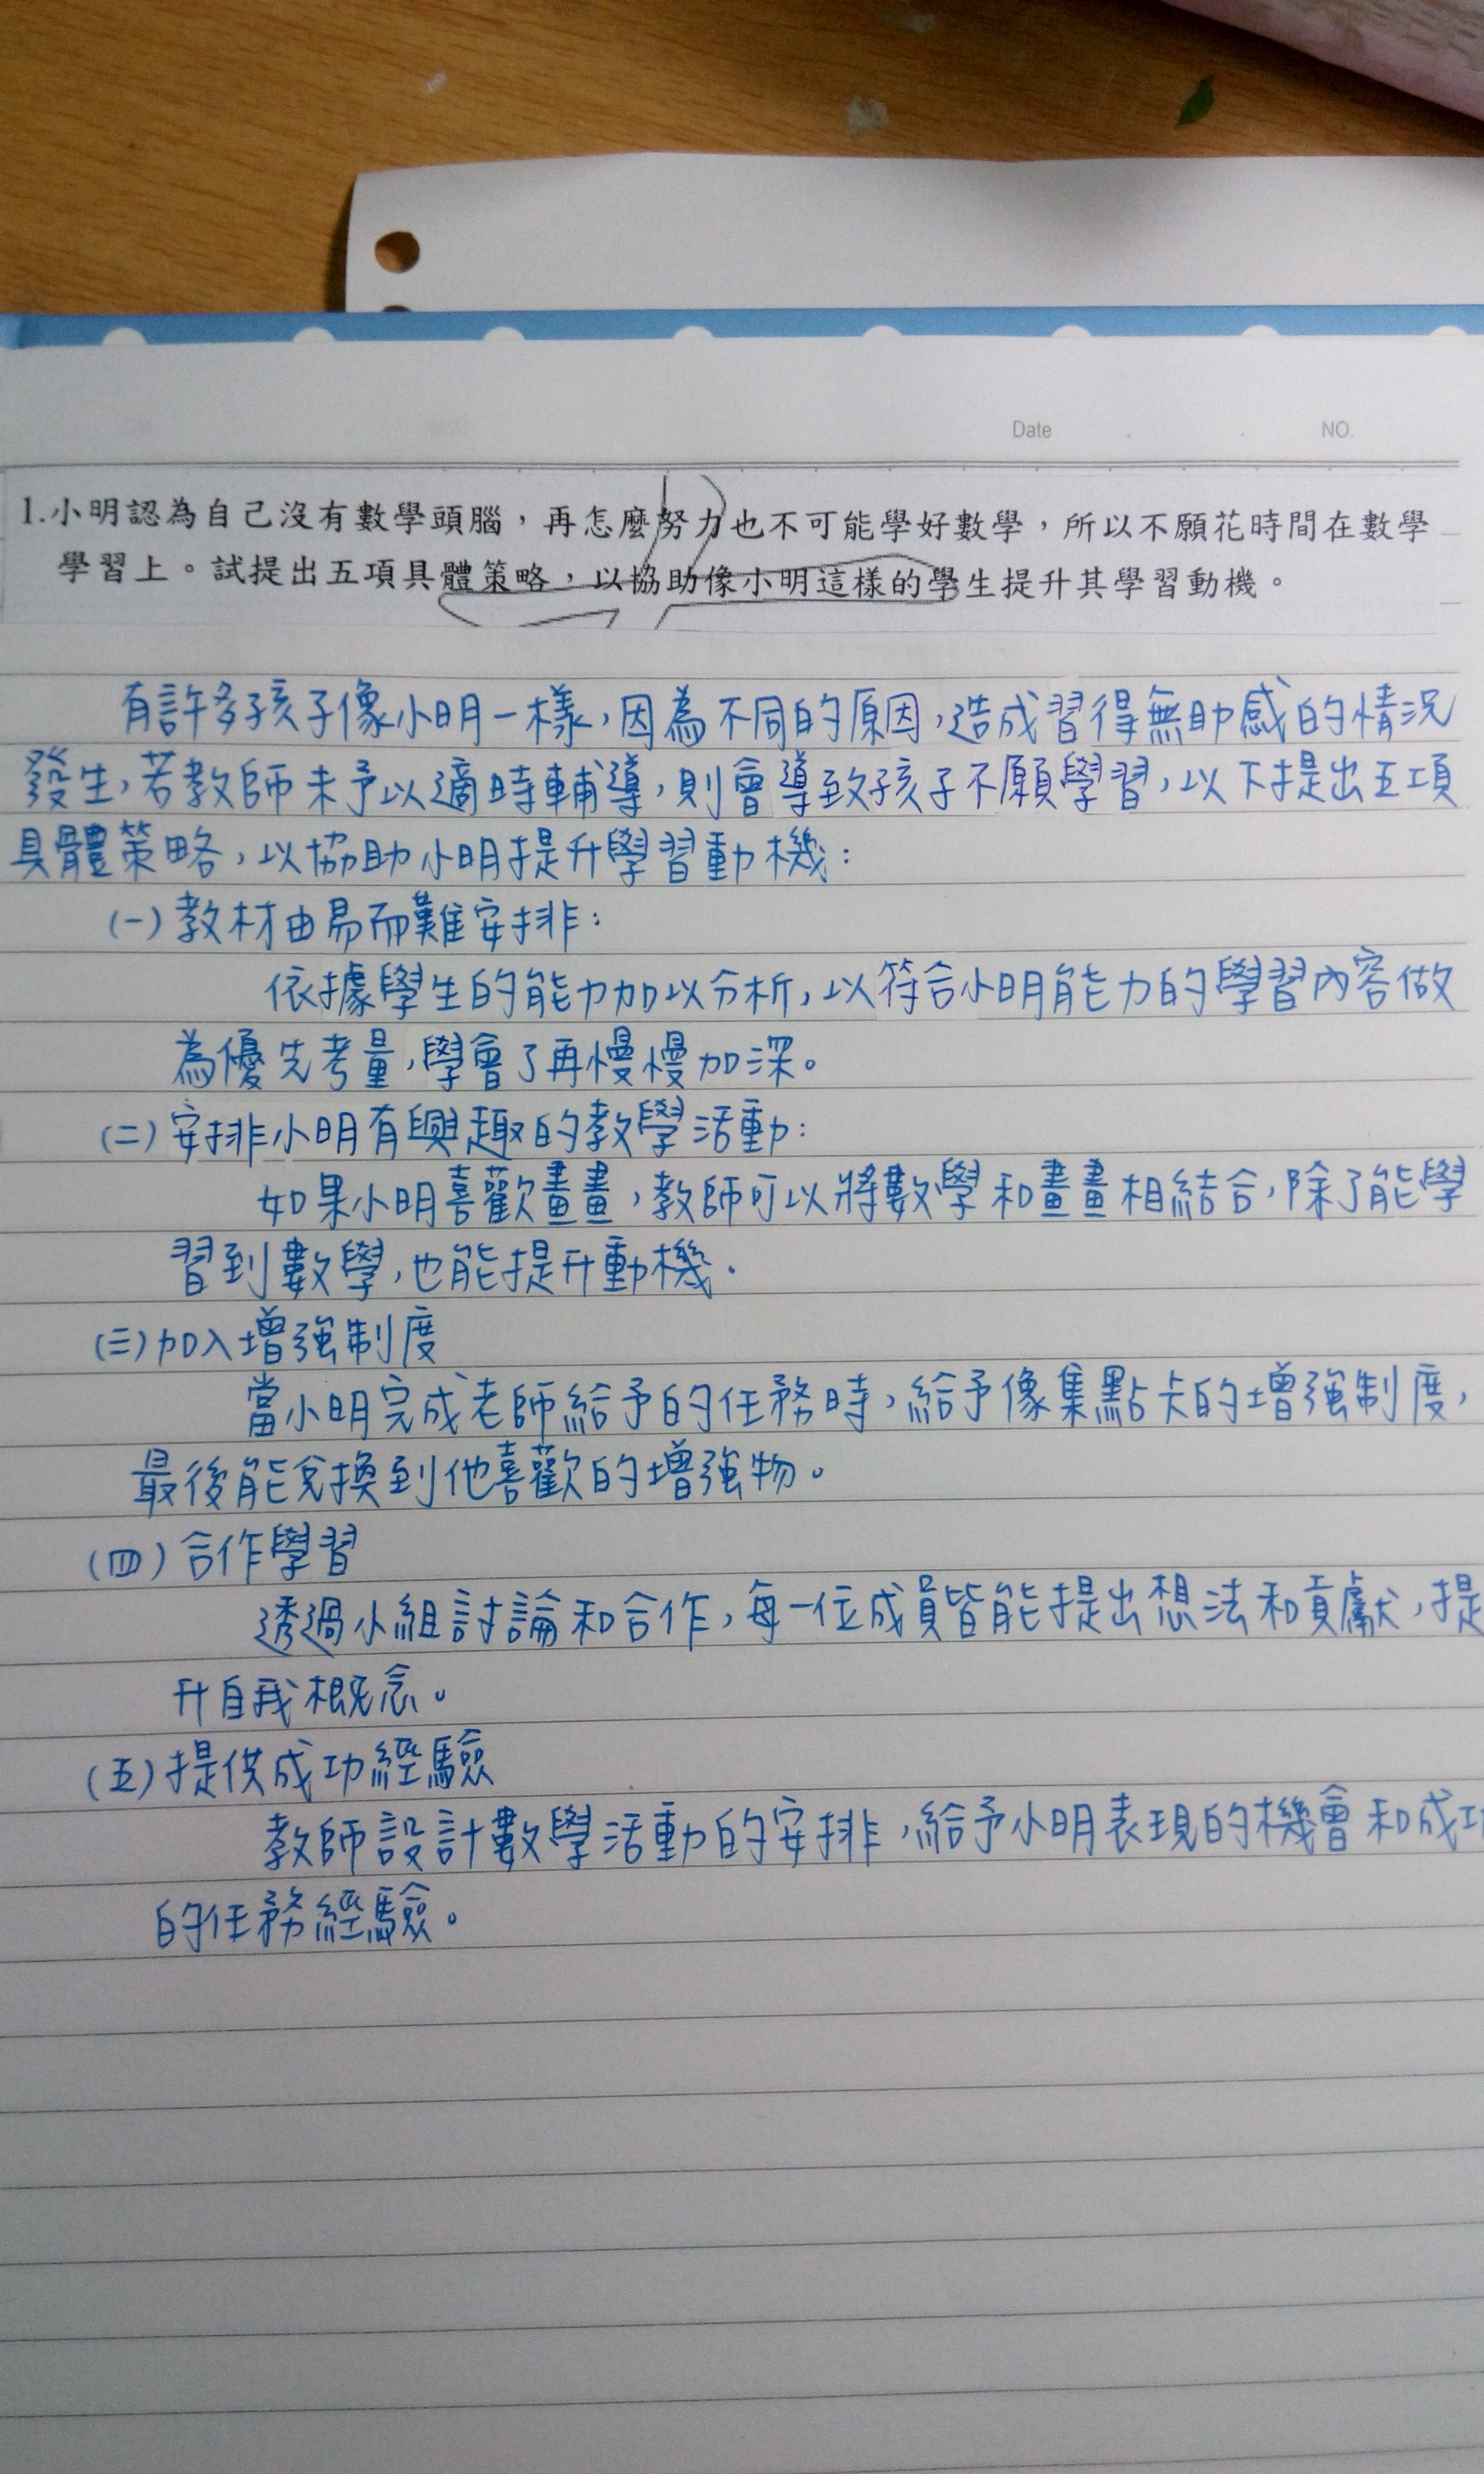 Date
NO.
1.小明認為自己沒有數學頭腦，再怎麼努力也不可能學好數學，所以不願花時間在數學
學習上。試提出五項具體策略，以協助像小明這樣的學生提升其學習動機。
有許多孩子像小明一樣，因為不同的原因，造成習得無助感的情況
發生，若教師未予以適時輔導，則會導致孩子不願學習，以下提出五項
具體策略，以協助小明提升學習動機：
(一)教材由易而難安排：
依據學生的能力加以分析，以符合小明能力的學習內容做
為優先考量，學會了再慢慢加深。
(二)安排小明有興趣的教學活動：
如果小明喜歡畫畫，教師可以將數學和畫畫相結合，除了能學
習到數學，也能提升動機.
(三)加入增強制度
當小明完成老師給予的任務時，給予像集點卡的增強制度，
最後能兌換到他喜歡的增強物。
(四)合作學習
透過小組討論和合作，每一位成員皆能提出想法和貢獻，提
升自我概念。
(五)提供成功經驗
教師設計數學活動的安排，給予小明表現的機會和成功
的任務經驗。